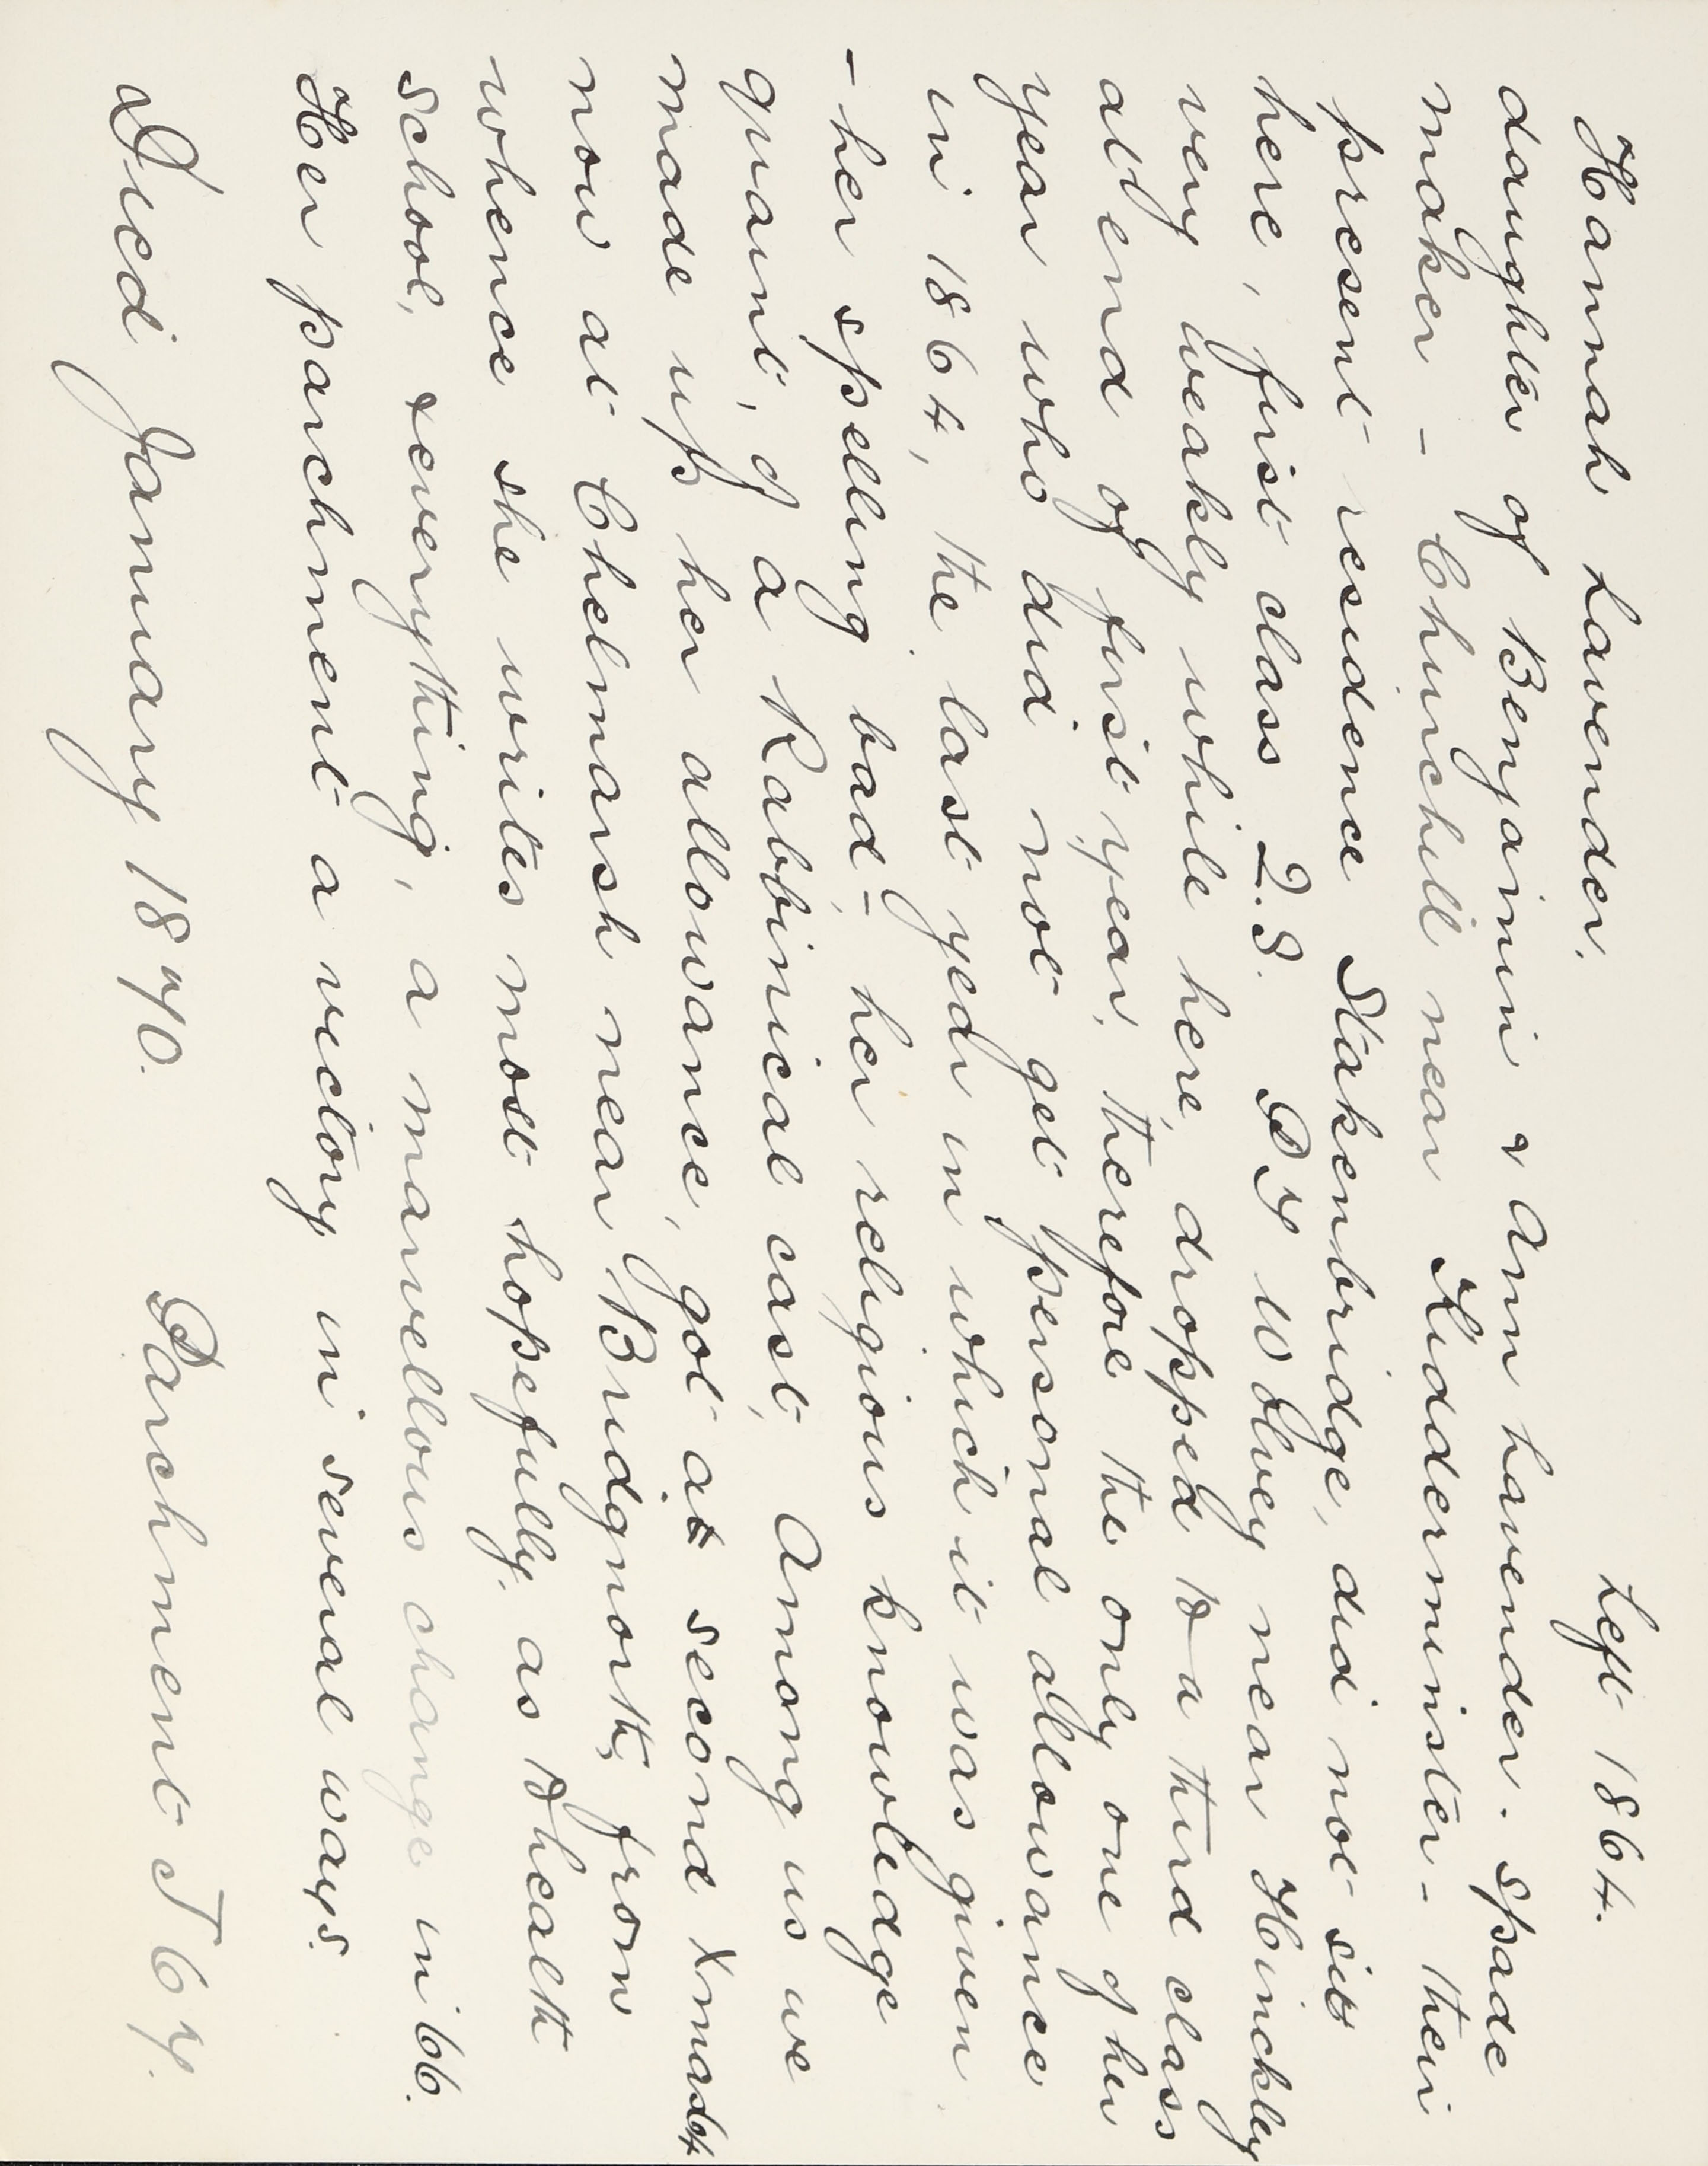 Hannah Lavender. Left 1864.
daughter of Benjamin & Ann Lavender. Spade
maker - Churchill near Kidderminster - their
present residence Stakenbridge, did not sit
here, first class 2. S. P Y Wolvey near Hinckley
very weakly while here, dropped to a third class
at end of first year, therefore the only one of her
year who did not get personal allowance
in 1864, the last year in which it was given
- her spelling bad - her religious knowledge
quaint, of a Rabbinical cast, Among us we
made up her allowance, got at second Xmas
now at Chelmarsh near Bridgnorth, from
whence she writes most hopefully. as to health
school, & everything, a marvellous change in 66.
Her parchment a victory in several ways.
Died January 1870. Parchment J 67.